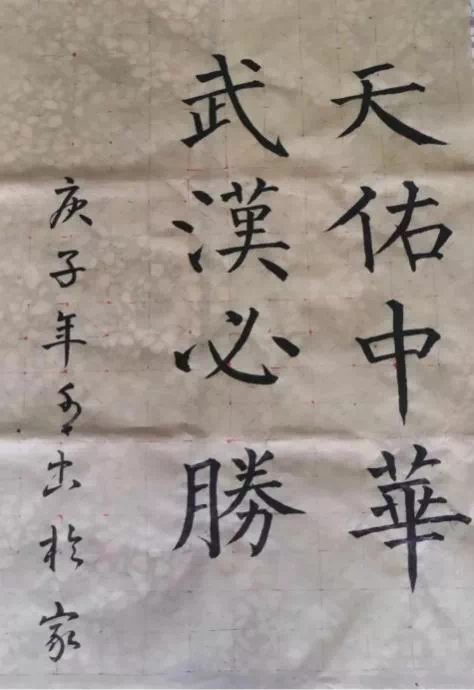 天佑中華
武漢必勝
庚子年於家